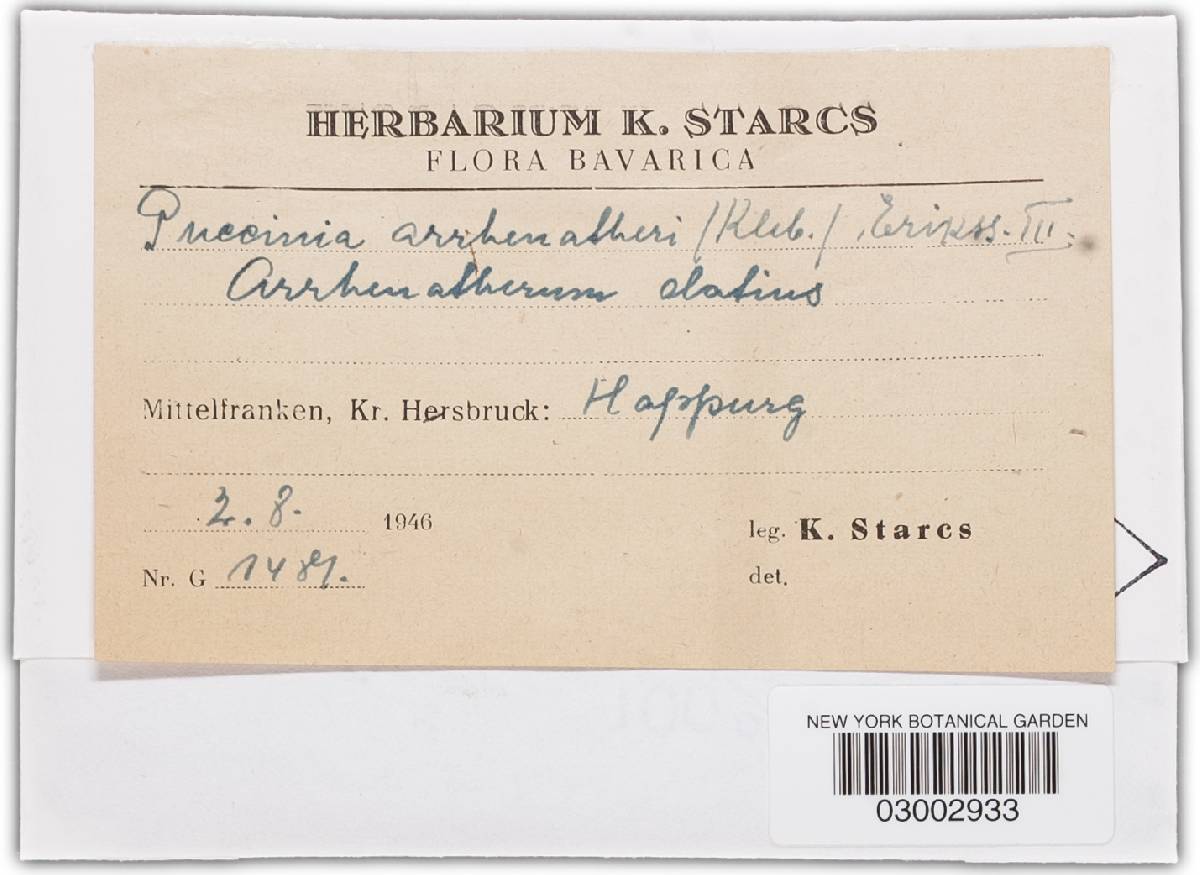 HERBARIUM K. STARCS
FLORA BAVARICA
Puccinia arrhenatheri (Kleb.) Erikss. III.
Arrhenatherum elatius
Mittelfranken, Kr. Hersbruck: Happurg
2. 8. 1946
leg. K. Starcs
Nr. G
det.
NEW YORK BOTANICAL GARDEN
03002933